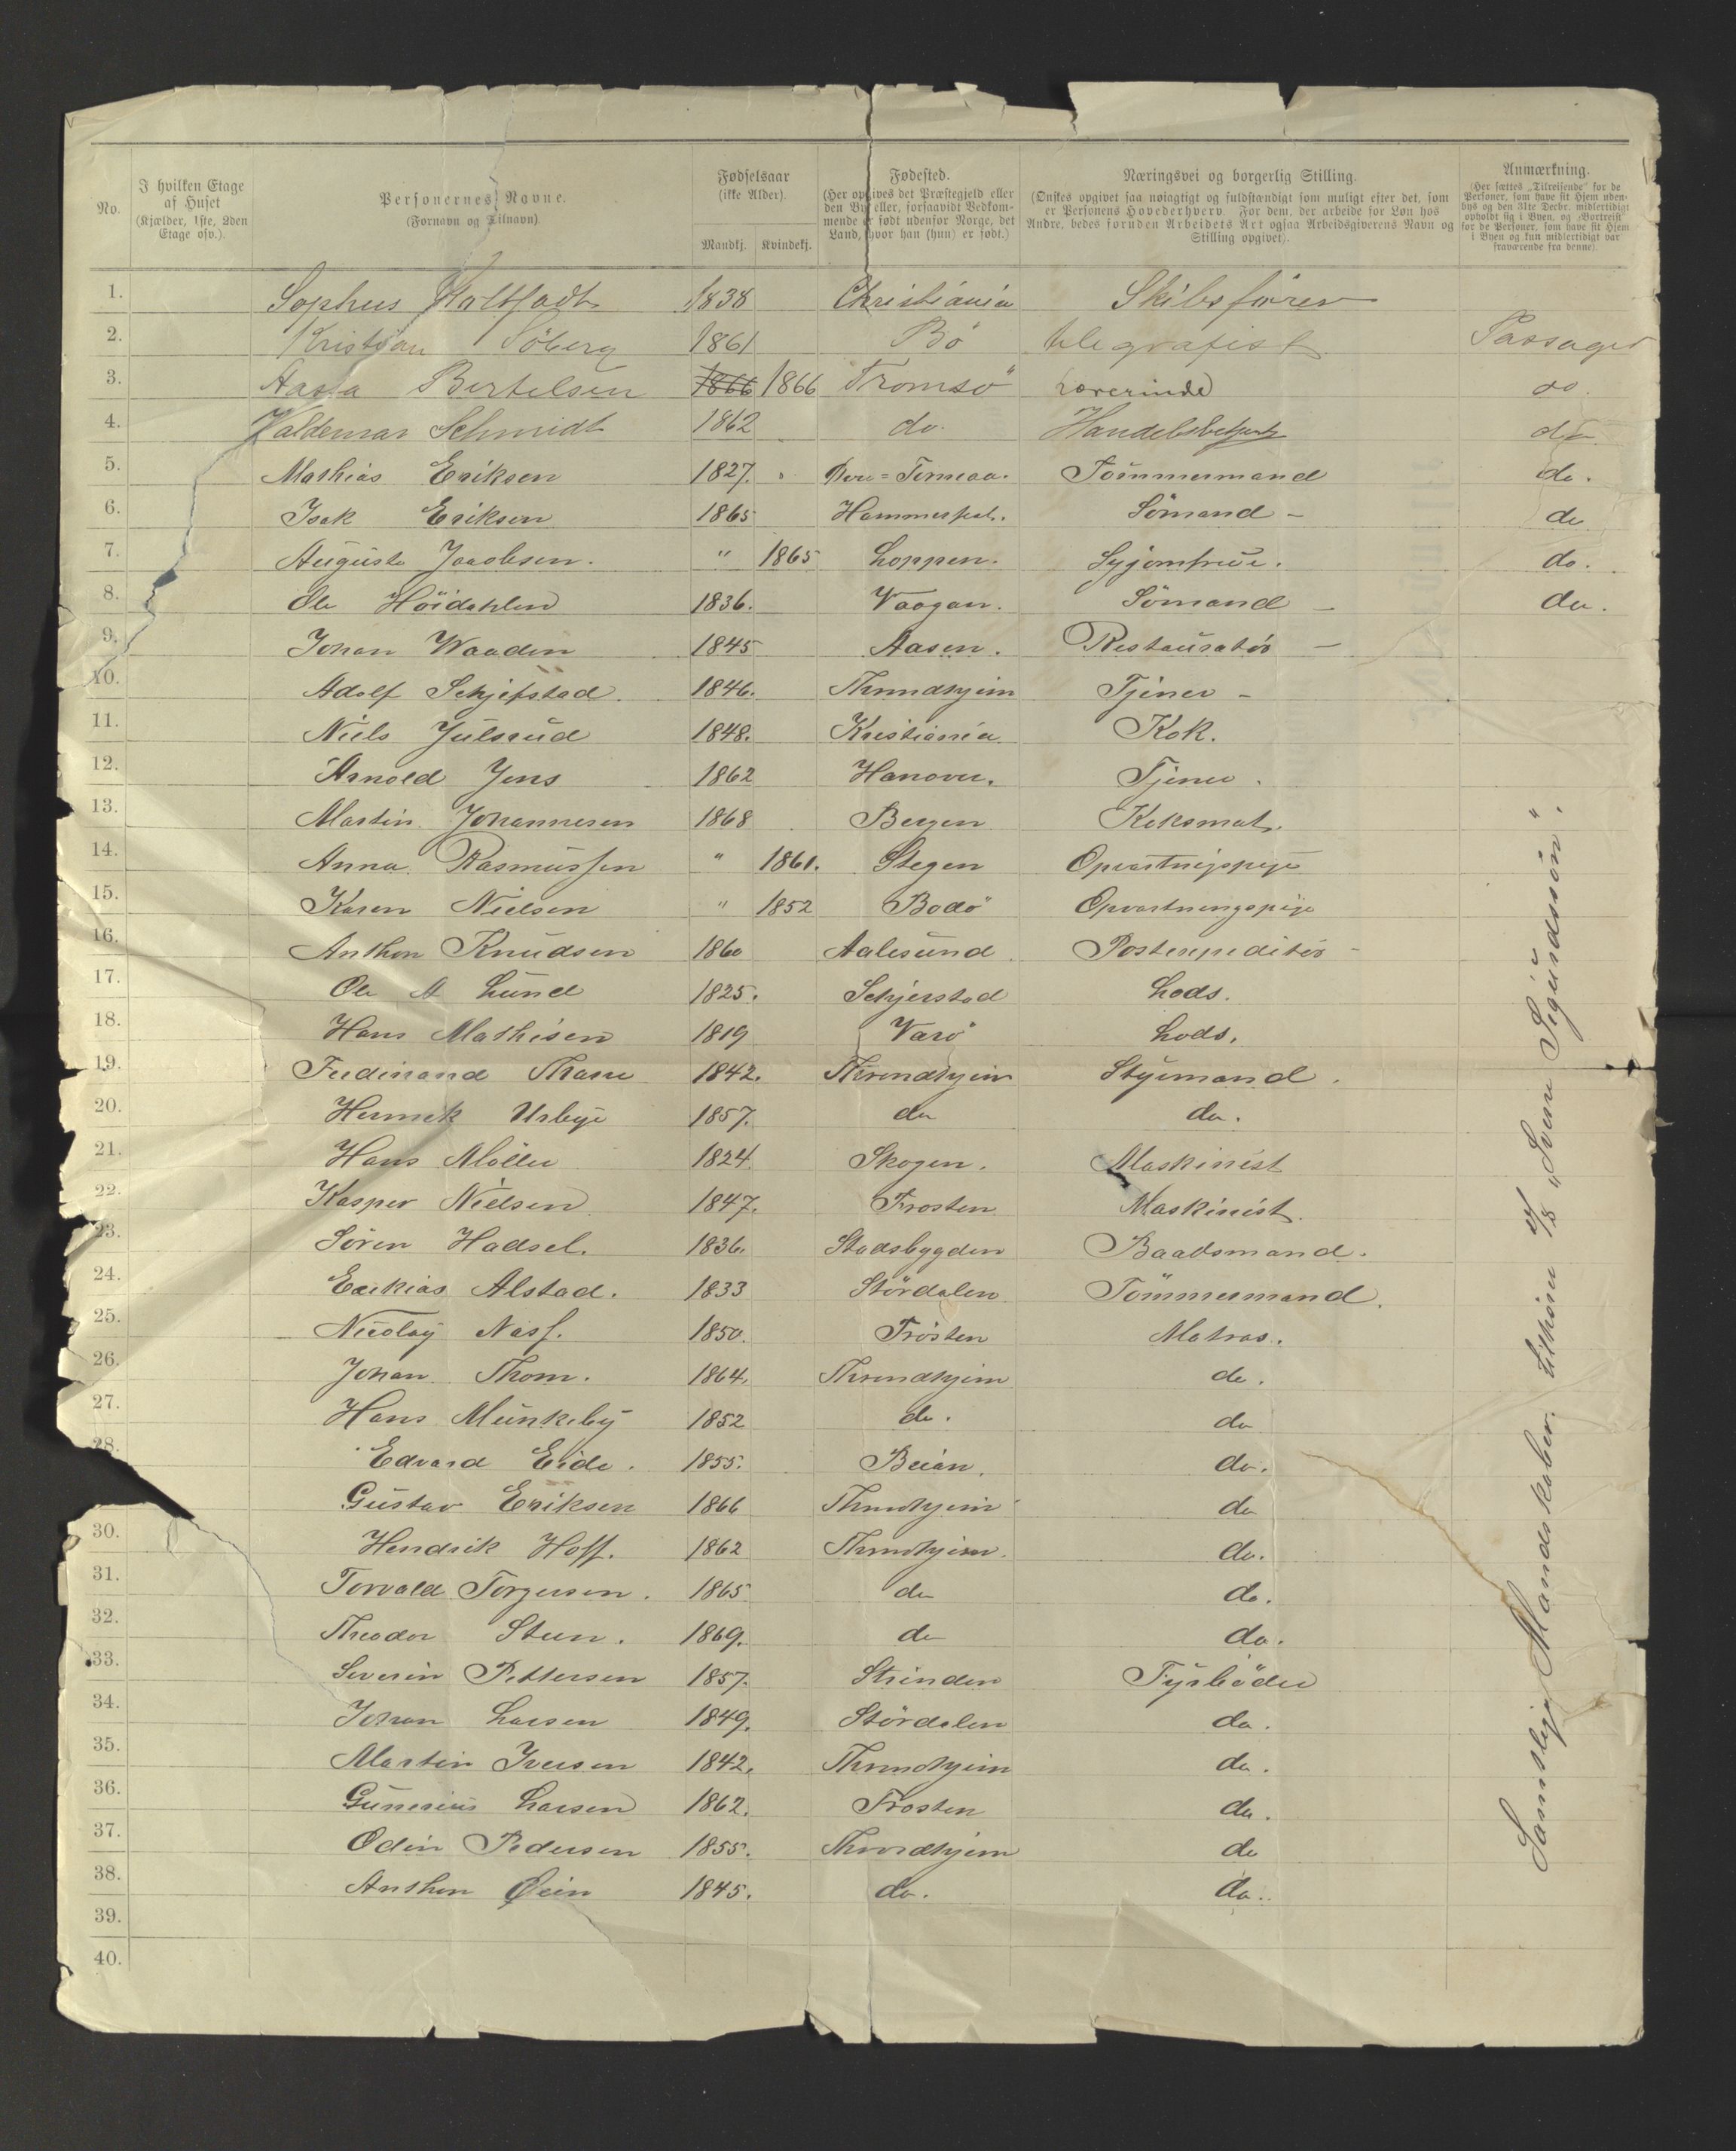 No.
I hvilken Etage af Huset (Kjælder, 1ste, 2den Etage osv.).
Personernes Navne. (Fornavn og Tilnavn)
Fødselsaar (ikke Alder). Mandkj. Kvindekj.
Fødested. (Her opgives det Præstegjeld eller den By eller, forsaavidt Vedkommende er født udenfor Norge, det Land, hvor han (hun) er født.)
Næringsvei og borgerlig Stilling. (Ønskes opgivet saa nøiagtigt og fuldstændigt som muligt efter det, som er Personens Hovederhverv. For dem, der arbeide for Løn hos Andre, bedes foruden Arbeidets Art ogsaa Arbeidsgiverens Navn og Stilling opgivet).
Anmærkning. (Her sættes „Tilreisende" for de Personer, som have sit Hjem udenbys og den 31te Decbr. midlertidigt opholdt sig i Byen, og „Bortreist" for de Personer, som have sit Hjem i Byen og kun midlertidigt var fraværende fra denne).
1. Sophus 1838 Christiania Skibsfører
2. Kristian Söberg 1861 Bö telegrafist Passager
3. Bertelsen 1866 1866 Tromsö Lærerinde do.
4. Valdemar Schmidt 1862 do. Handelsbetjent do
5. Mathias Eriksen 1827. Torneaa. Tömmermand do.
6. Isak Eriksen 1865 Hammerfest. Sömand - do
7. Augusta Jacobsen. " 1865 Loppen. Syjomfrue. do.
8. Ole Höidahlen 1836. Vaagan. Sömand - do.
9. Johan Waaden 1845 Aasen. Restauratör -
10. Adolf Schjefstad. 1846. Throndhjem Tjener -
11. Niels Julsrud 1848. Kristiania Kok.
12. Arnold Jens 1862 Hanover. Tjener.
13. Martin Johannesen 1868 Bergen Koksmat.
14. Anna Rasmussen " 1861. Stegen Opvartningspige
15. Karen Nielsen " 1852 Bodö Opvartningspige
16. Anthon Knudsen 1860 Aalesund Postexpeditör -
17. Ole A Lund 1825. Schjerstad Lods.
18. Hans Mathisen 1819 Varö Lods.
19. Ferdinand Thane 1842. Throndhjem Styrmand.
20. Henrik Urbye 1857. do do.
21. Hans Möller 1824. Skogen. Maskinist
22. Kasper Nielsen 1847. Frosten Maskinist.
23. Sören Hadsel. 1836. Stadsbygden Baadsmand.
24. Esekias Alstad. 1833 Stördalen Tömmermand.
25. Nicolay Næss. 1850. Frosten Matros.
26. Johan Thom. 1864. Throndhjem do.
27. Hans Munkeby 1852 do. do
28. Edvard Eide. 1855. Beian. do.
Gustav Eriksen 1866 Throndhjem do
30. Hendrik Hoff. 1862 Throndhjem. do.
31. Torvald Torgersen. 1865 do do.
32. Theodor Steen. 1869. do do.
33. Severin Pettersen 1857. Strinden Fyrböder
34. Johan Larsen 1849. Stördalen do.
35. Martin Iversen 1842. Throndhjem do.
36. Gunerius Larsen 1862. Frosten do.
37. Odin Pedersen 1855. Throndhjem do
38. Anthon Øien 1845. do. do.
39.
40.
Samtlige Mandskaber. tilhører D/S „Sverre Sigurdssön".